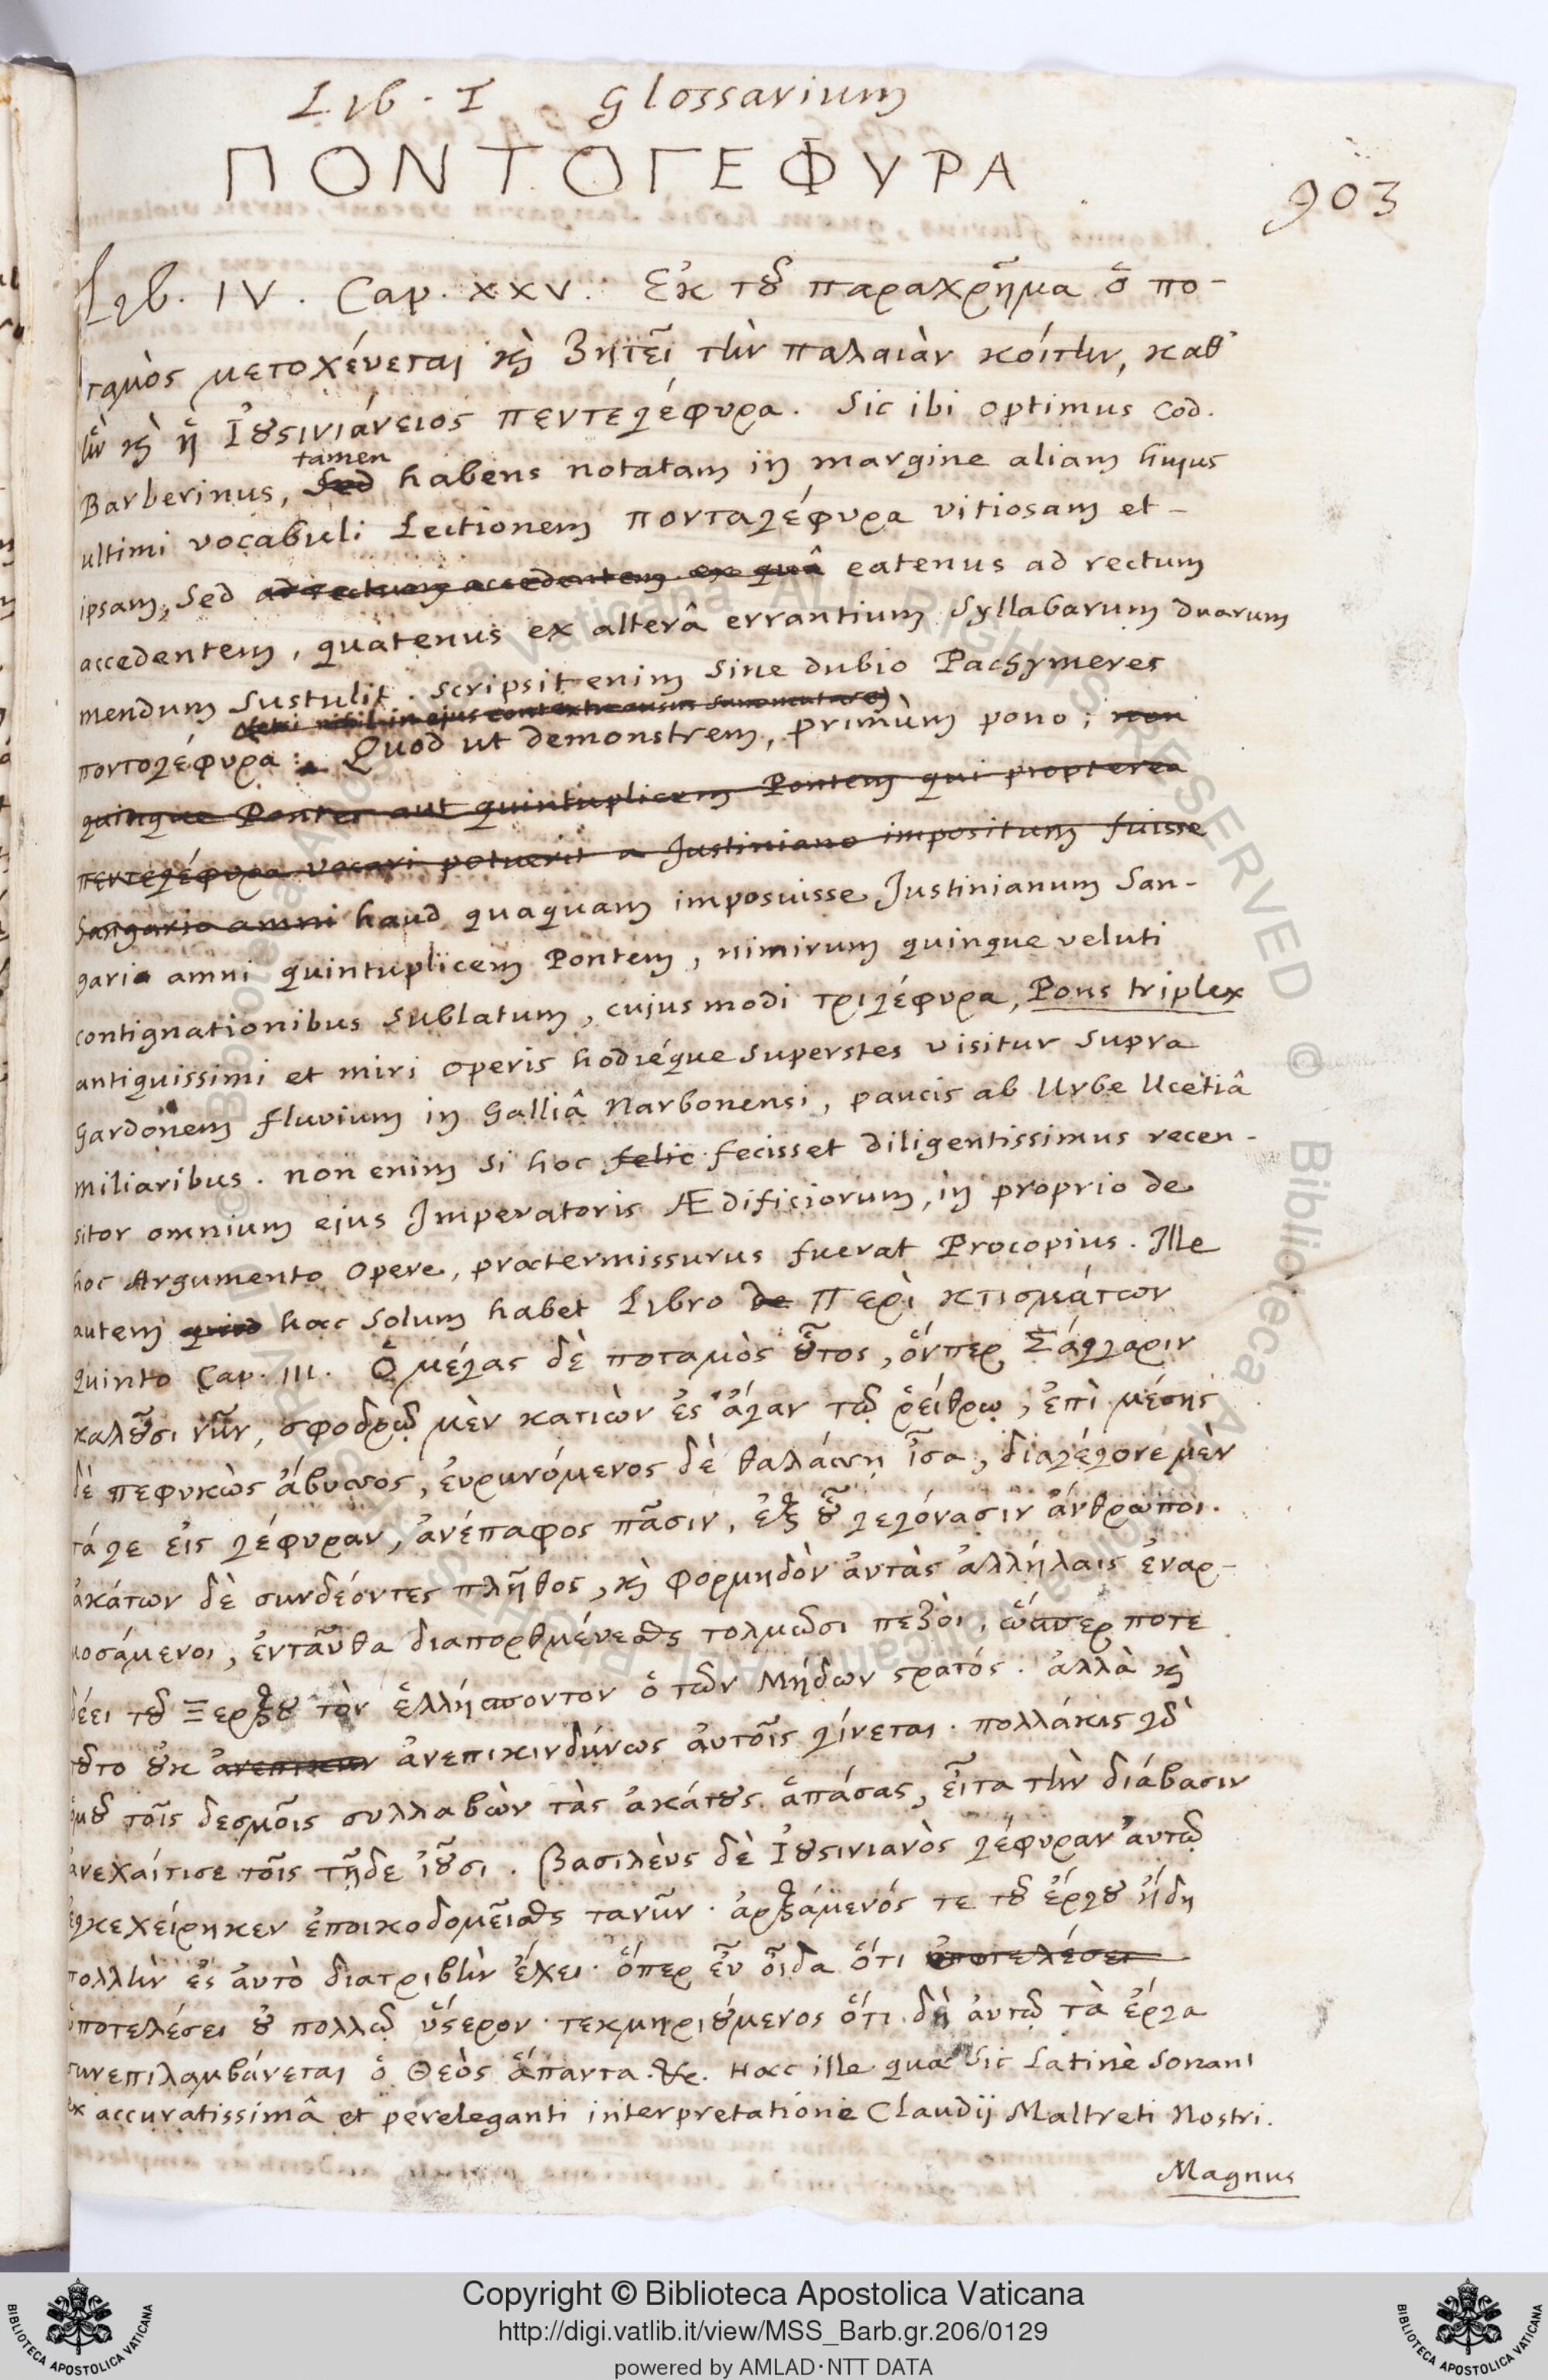 Lib. I Glossarium
ΠΟΝΤΟΓΕΦΥΡΑ
903
Lib. IV. Cap. XXV. Ἐκ τȣ͂ παραχρῆμα ὁ πο-
ταμὸς μετοχέυεται καὶ ζητεῖ τὴν παλαιὰν κόιτην, καθ'
ἣν καὶ ἡ Ἰȣστινιάνειος πεντεγέφυρα. Sic ibi optimus Cod.
tamen
Barberinus, Sed habens notatam in margine aliam hujus
ultimi vocabuli Lectionem πονταγέφυρα vitiosam et-
ipsam, Sed ad rectum accedentem ex quâ eatenus ad rectum
accedentem, quatenus ex alterâ errantium Syllabarum duarum
mendum Sustulit. Scripsit enim Sine dubio Pachymeres
ποντογέφυρα: Quod ut demonstrem, primùm pono; non
quinque Pontes aut quintuplicem Pontem qui propterea
πεντεγέφυρα vocari potuerit a Justiniano impositum fuisse
Sangario amni haud quaquam imposuisse Justinianum San-
gario amni quintuplicem Pontem, nimirum quinque veluti
contignationibus Sublatum, cujusmodi τριγέφυρα, Pons triplex
antiquissimi et miri operis hodiéque Superstes visitur Supra
Gardonem fluvium in Galliâ Narbonensi, paucis ab Urbe Ucetiâ
miliaribus. non enim Si hoc felic fecisset diligentissimus recen-
sitor omnium ejus Imperatoris Ædificiorum, in proprio de
hoc Argumento Opere, prætermissurus fuerat Procopius. Ille
autem quid hæc Solum habet Libro de Περὶ κτισμάτων
Quinto Cap. III. Ὁ μέγας δὲ ποταμὸς ȣ͗͂τος, ὅνπερ Σάγγαριν
καλȣ͂σι νῦν, σφοδρῷ μὲν κατιὼν ἐς ἄγαν τῷ ῥείθρῳ, ἐπὶ μέσης
δὲ πεφυκὼς ἄβυσσος, ἐυρυνόμενος δὲ θαλάσσῃ ἴσα, διαγέγονε μὲν
τάγε ἐις γέφυραν, ἀνέπαφος πᾶσιν, ἐξ ȣ͗͂ γεγόνασιν ἄνθρωποι.
ἀκάτων δὲ συνδέοντες πλῆθος, καὶ φορμηδὸν ἀυτὰς ἀλλήλαις ἐναρ-
μοσάμενοι, ἐνταῦθα διαπορθμέυεσθαι τολμῶσι πεζόι, ὥσπερ ποτε
δέει τȣ͂ Ξέρξȣ τὸν ἑλλήσποντον ὁ τῶν Μήδων στρατός. ἀλλὰ καὶ
τȣ͂το ȣ͗κ ἀνεπικιν ἀνεπικινδύνως ἀυτοῖς γίνεται. πολλάκις γὰρ
ὁμȣ͂ τοῖς δεσμοῖς συλλαβὼν τὰς ἀκάτȣς ἁπάσας, εἶτα τὴν διάβασιν
ἀνεχαίτισε τοῖς τῇδε ἰȣ͂σι. Βασιλεὺς δὲ Ἰȣστινιανὸς γέφυραν ἀυτῷ
ἐγκεχείρηκεν ἐποικοδομεῖσθαι τανῦν. ἀρξάμενός τε τȣ͂ ἔργȣ ἤδη
πολλὴν ἐς ἀυτὸ διατριβὴν ἔχει. ὅπερ εὖ οἶδα ὅτι ὑποτελέσει
ὑποτελέσει ȣ͗ πολλῷ ὕστερον. τεκμηριȣ́μενος ὅτι δὴ ἀυτῷ τὰ ἔργα
συνεπιλαμβάνεται ὁ Θεὸς ἅπαντα. &c. Hæc ille quæ Sic Latinè Sonant
ex accuratissimâ et pereleganti interpretatione Claudij Maltreti Nostri.
Magnus
Copyright © Biblioteca Apostolica Vaticana
http://digi.vatlib.it/view/MSS_Barb.gr.206/0129
powered by AMLAD·NTT DATA